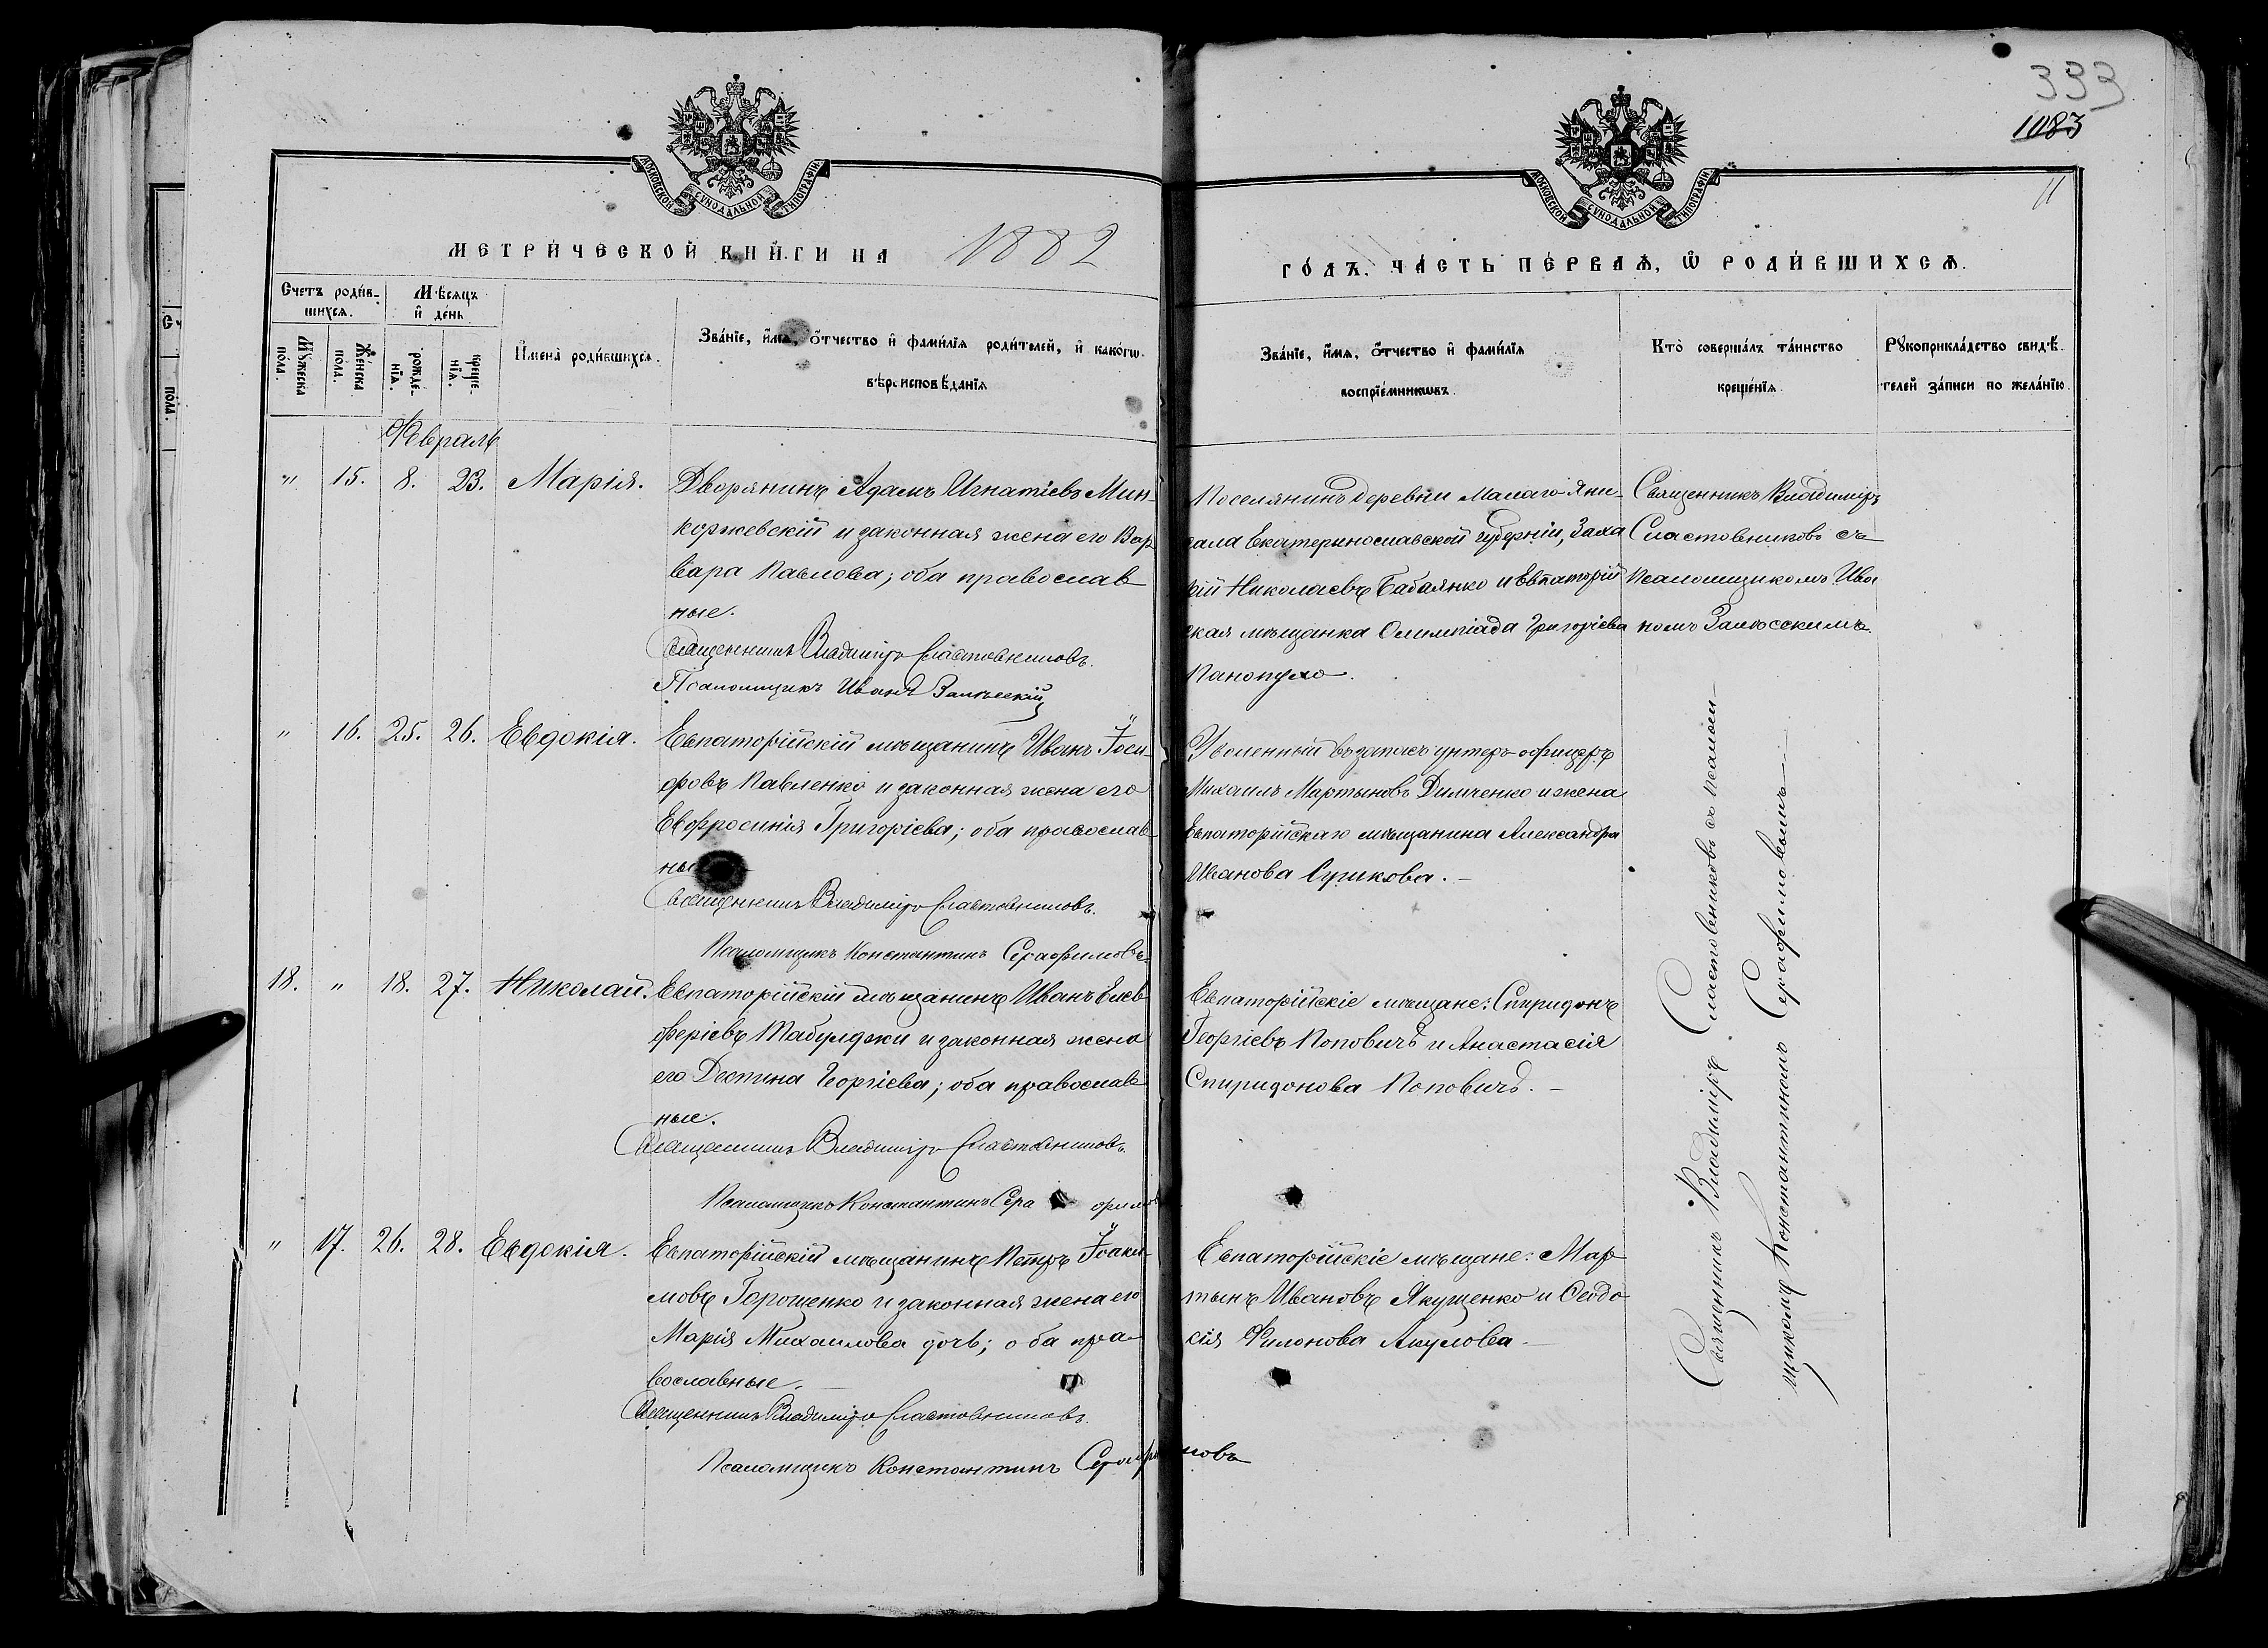 333
1083
11
МОСКОВСКОЙ СѴНОДАЛЬНОЙ ТИПОГРАФІИ
МОСКОВСКОЙ СѴНОДАЛЬНОЙ ТИПОГРАФІИ
МЕТРИ́ЧЕСКОЙ КНИ́ГИ НА 1882
ГО́ДЪ. ЧА́СТЬ ПЕ́РВАѦ, Ѡ҆ РОДИ́ВШИХСѦ.
Счетъ роди́в-
шихсѧ.
Мѣ́сѧцъ
и҆ де́нь
Мꙋ́жеска
по́ла.
Же́нска
по́ла.
рожде́-
нїѧ.
креще́-
нїѧ.
И҆мена̀ роди́вшихсѧ.
Зва́нїе, и҆́мѧ, ѻ҆́тчество и҆ фами́лїѧ роди́телей, и҆ како́гѡ
вѣроисповѣ́данїѧ
Зва́нїе, и҆́мѧ, ѻ҆́тчество и҆ фами́лїѧ
воспрїе́мникѡвъ.
Кто̀ соверша́лъ та́инство
креще́нїѧ.
Рꙋкоприкла́дство свидѣ́-
телей за́писи по жела́нїю.
Февраль
" 15. 8. 23. Марія.
Дворянинъ Адамъ Игнатіевъ Мин-
коржевскій и законная жена его Вар
вара Павлова; оба православ
ные.
Священникъ Владиміръ Сластовниковъ.
Псаломщикъ Иванъ Залѣсскій
Поселянинъ деревни Малаго Яни-
сала Екатеринославской губерніи, Заха
рій Николаевъ Бабаянко и Евпаторій
ская мѣщанка Олимпіада Григоріева
Панопуло.
Священникъ Владиміръ
Сластовниковъ съ
Псаломщикомъ Ива
номъ Залѣсскимъ.
" 16. 25. 26. Евдокія.
Евпаторійскій мѣщанинъ Иванъ Іоси-
фовъ Павленко и законная жена его
Евфросинія Григоріева; оба православ-
ны
Священникъ Владиміръ Сластовниковъ.
Псаломщикъ Константинъ Серафимовъ.
Уволенный въ запасъ унтеръ-офицеръ
Михаилъ Мартыновъ Димченко и жена
Евпаторійскаго мѣщанина Александра
Иванова Сушкова. –
18. " 18. 27. Николай.
Евпаторійскій мѣщанинъ Иванъ Елев
феріевъ Табулджи и законная жена
его Деспина Георгіева; оба православ
ные.
Священникъ Владиміръ Сластовниковъ.
Псаломщикъ Константинъ Сера фимов
Евпаторійскіе мѣщане: Спиридонъ
Георгіевъ Поповичъ и Анастасія
Спиридонова Поповичъ. –
" 17. 26. 28. Евдокія.
Евпаторійскій мѣщанинъ Петръ Іоаки-
мовъ Горошенко и законная жена его
Марія Михаилова дочь; оба пра-
вославные. –
Священникъ Владиміръ Сластовниковъ.
Псаломщикъ Константинъ Серафимовъ
Евпаторійскіе мѣщане: Мар-
тынъ Ивановъ Якущенко и Ѳеодо
сія Филонова Акулова –
Священникъ Владиміръ Сластовниковъ съ Псалом-
щикомъ Константиномъ Серафимовымъ